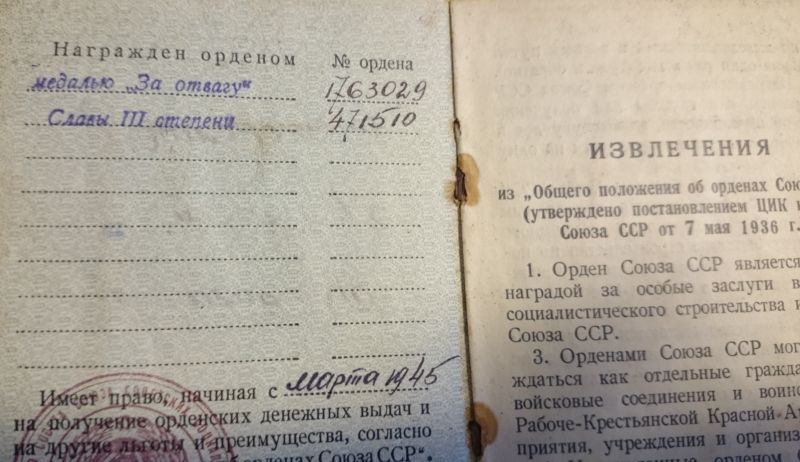 Награжден орденом № ордена
медалью „За отвагу“ 1763029
Славы III степени 471510
Имеет право, начиная с марта 1945
на получение орденских денежных выдач и
на другие льготы и преимущества, согласно
орденах Союза ССР“.
ИЗВЛЕЧЕНИЯ
из „Общего положения об орденах Сою
(утверждено постановлением ЦИК и
Союза ССР от 7 мая 1936 г.
1. Орден Союза ССР является
наградой за особые заслуги в
социалистического строительства и
Союза ССР.
3. Орденами Союза ССР мог
ждаться как отдельные гражда
войсковые соединения и воинс
Рабоче-Крестьянской Красной А
приятия, учреждения и организ
орденом